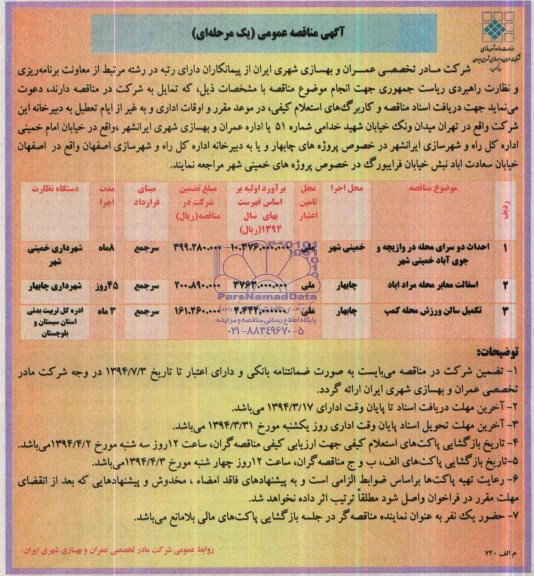 آگهی مناقصه عمومی (یک مرحله‌ای)
شرکت مادر تخصصی عمران و بهسازی شهری ایران از پیمانکاران دارای رتبه در رشته مرتبط از معاونت برنامه‌ریزی
و نظارت راهبردی ریاست جمهوری جهت انجام موضوع مناقصه با مشخصات ذیل، که تمایل به شرکت در مناقصه دارند، دعوت
می‌نماید جهت دریافت اسناد مناقصه و کاربرگ‌های استعلام کیفی، در موعد مقرر و اوقات اداری و به غیر از ایام تعطیل به دبیرخانه این
شرکت واقع در تهران میدان ونک خیابان شهید خدامی شماره ۵۱ یا اداره عمران و بهسازی شهری ایرانشهر ،واقع در خیابان امام خمینی
اداره کل راه و شهرسازی ایرانشهر در خصوص پروژه های چابهار و یا به دبیرخانه اداره کل راه و شهرسازی اصفهان واقع در اصفهان
خیابان سعادت اباد نبش خیابان فرایبورگ در خصوص پروژه های خمینی شهر مراجعه نمایند.
ردیف موضوع مناقصه محل اجرا محل تامین اعتبار برآورد اولیه بر اساس فهرست بهای سال ۱۳۹۴(ریال) مبلغ تضمین شرکت در مناقصه(ریال) مبنای قرارداد مدت اجرا دستگاه نظارت
۱ احداث دو سرای محله در وازیچه و جوی آباد خمینی شهر خمینی شهر ملی ۱۰.۳۷۶.۰۰۰.۰۰۰ ۳۹۹.۲۸۰.۰۰۰ سرجمع ۸ماه شهرداری خمینی شهر
۲ اسفالت معابر محله مراد اباد چابهار ملی ۳۷۶۳.۰۰۰.۰۰۰ ۲۰۰.۸۹۰.۰۰۰ سرجمع ۴۵روز شهرداری چابهار
۳ تکمیل سالن ورزش محله کمپ چابهار ملی ۲.۴۴۲.۰۰۰.۰۰۰ ۱۶۱.۲۶۰.۰۰۰ سرجمع ۳ ماه ادره کل تربیت بدنی استان سیستان و بلوچستان
ParsNamadData
پایگاه اطلاع رسانی مناقصه و مزایده
۰۲۱-۸۸۳۴۹۶۷۰-۵
توضیحات:
۱- تضمین شرکت در مناقصه می‌بایست به صورت ضمانتنامه بانکی و دارای اعتبار تا تاریخ ۱۳۹۴/۷/۳ در وجه شرکت مادر
تخصصی عمران و بهسازی شهری ایران ارائه گردد.
۲- آخرین مهلت دریافت اسناد تا پایان وقت ادارای ۱۳۹۴/۳/۱۷ می‌باشد.
۳- آخرین مهلت تحویل اسناد پایان وقت اداری روز یکشنبه مورخ ۱۳۹۴/۳/۳۱ می‌باشد.
۴- تاریخ بازگشایی پاکت‌های استعلام کیفی جهت ارزیابی کیفی مناقصه‌گران، ساعت ۱۲روز سه شنبه مورخ ۱۳۹۴/۴/۲می‌باشد.
۵-تاریخ بازگشایی پاکت‌های الف، ب و ج مناقصه‌گران، ساعت ۱۲روز چهار شنبه مورخ ۱۳۹۴/۴/۳می‌باشد.
۶- رعایت تهیه پاکت‌ها براساس ضوابط الزامی است و به پیشنهادهای فاقد امضاء ، مخدوش و پیشنهادهایی که بعد از انقضای
مهلت مقرر در فراخوان واصل شود مطلقاً ترتیب اثر داده نخواهد شد.
۷- حضور یک نفر به عنوان نماینده مناقصه‌گر در جلسه بازگشایی پاکت‌های مالی بلامانع می‌باشد.
روابط عمومی شرکت مادر تخصصی عمران و بهسازی شهری ایران
م الف ۷۲۰